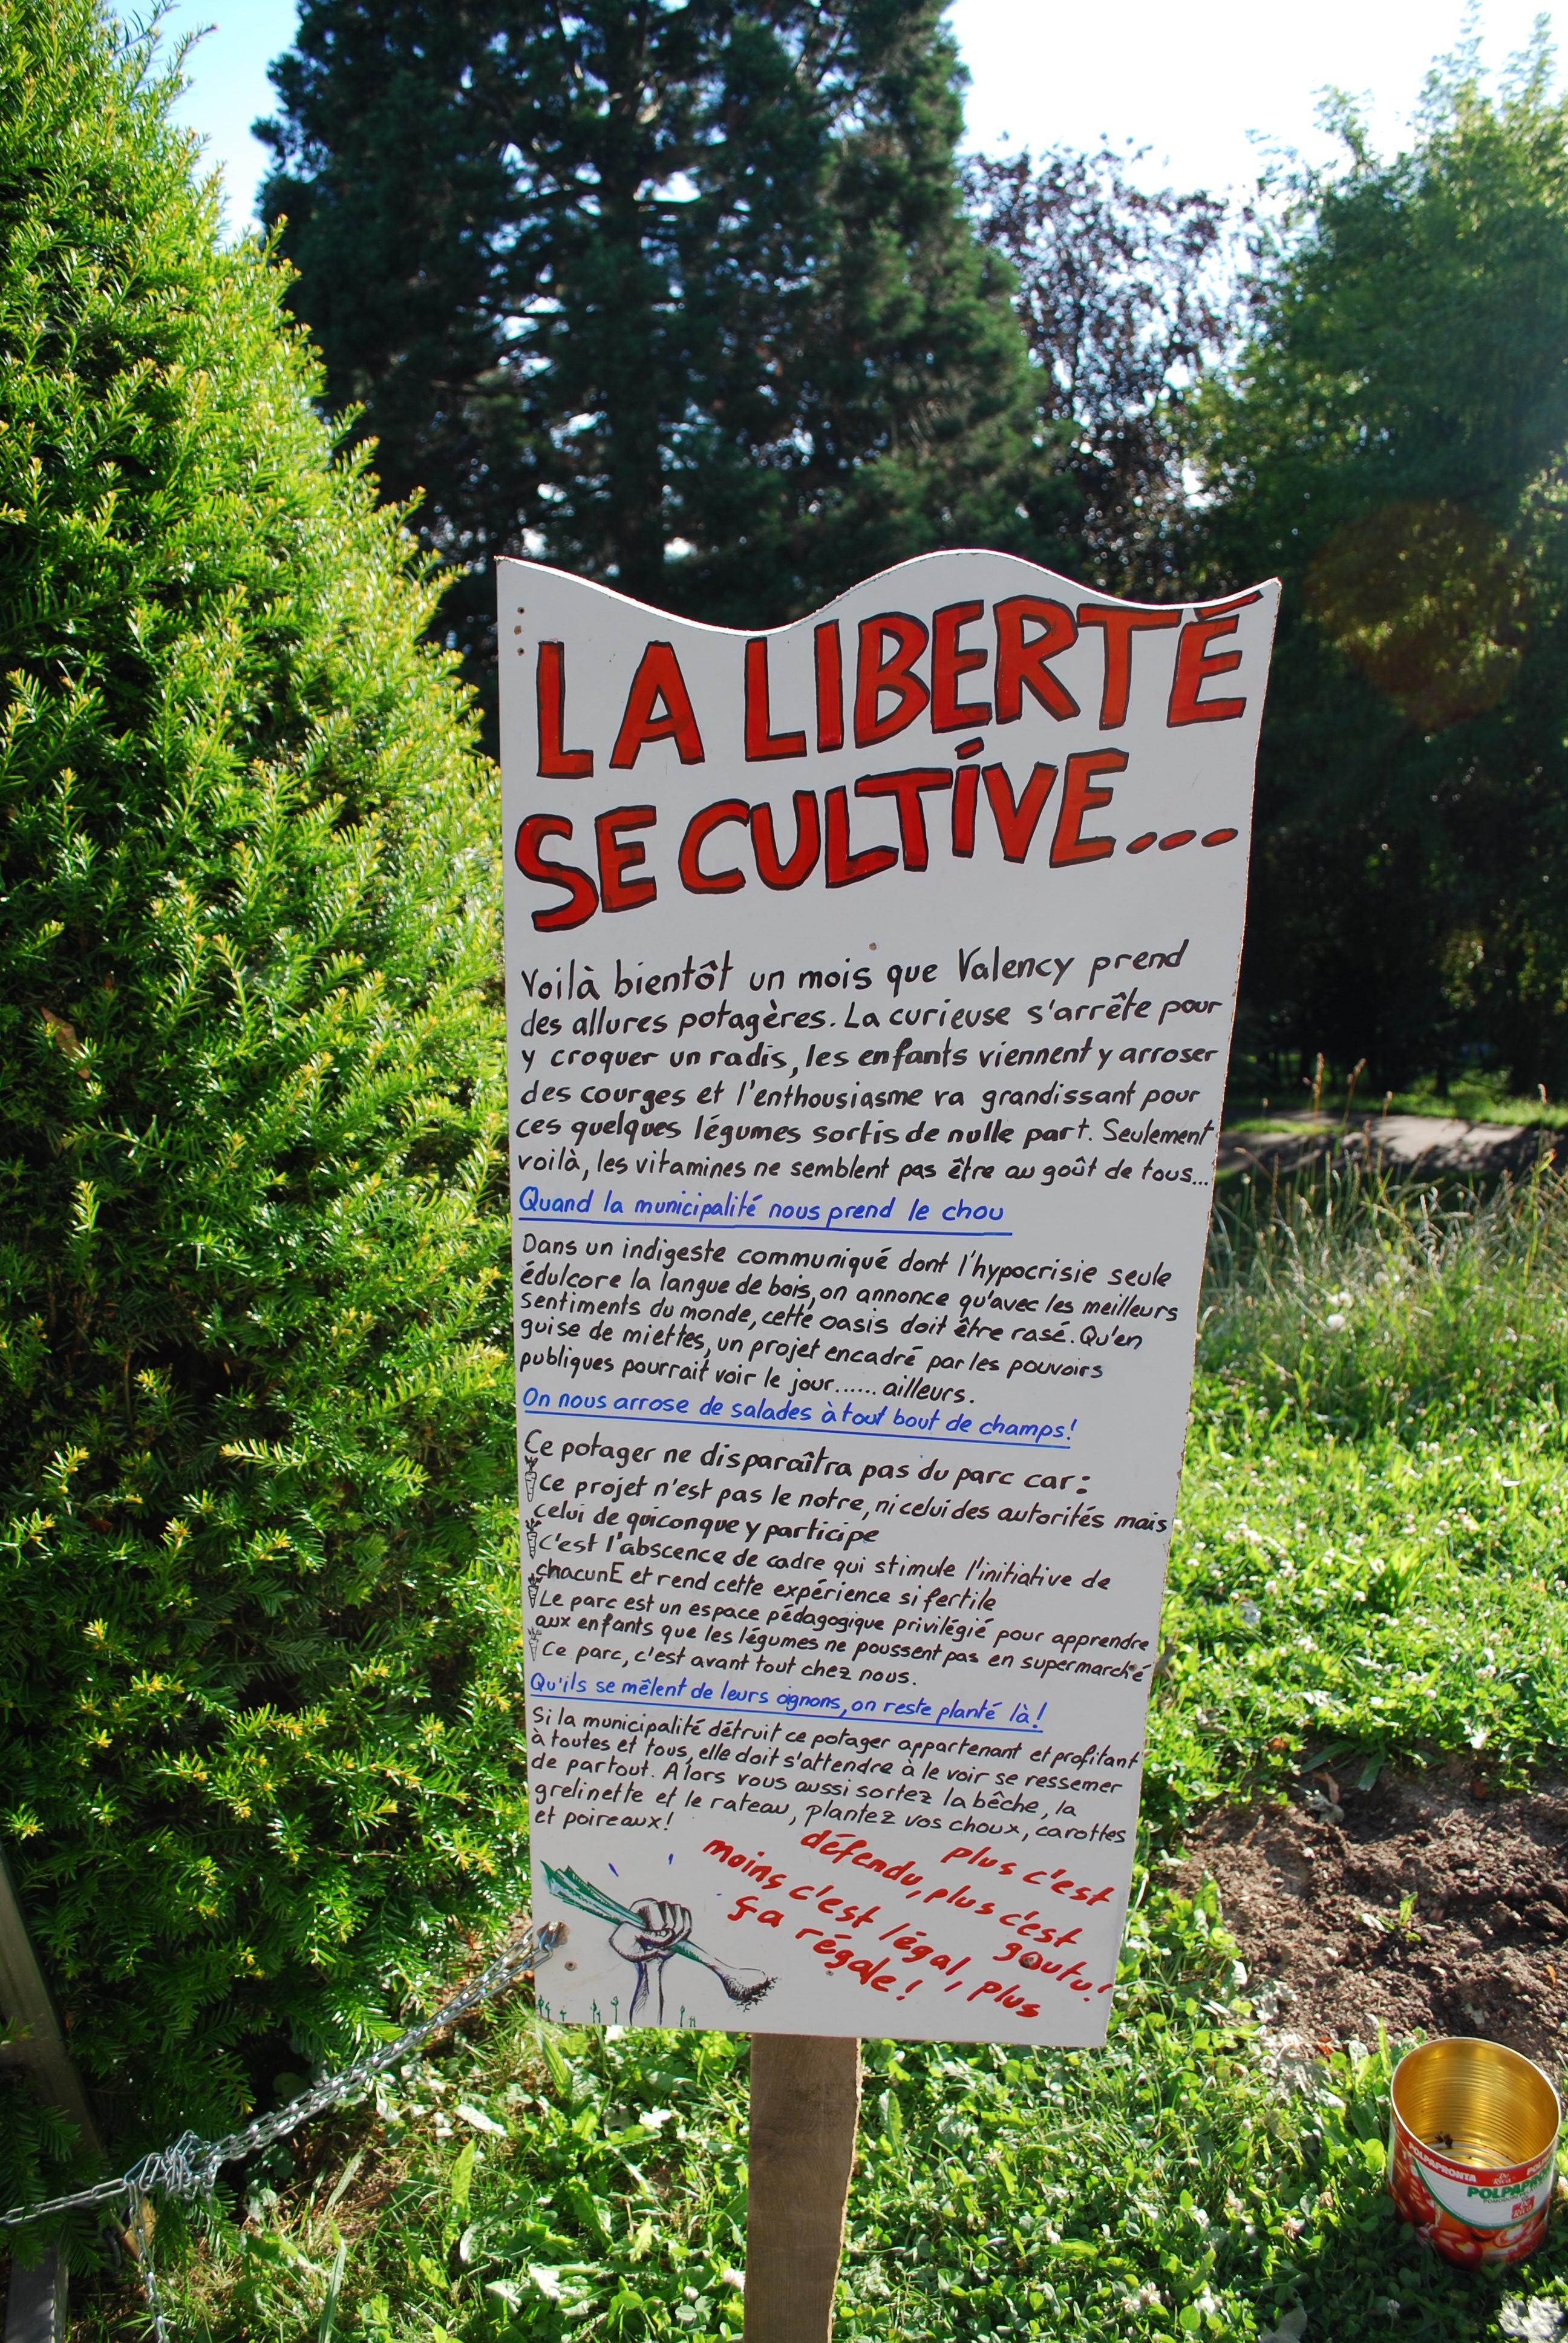 LA LIBERTÉ
SE CULTIVE...
Voilà bientôt un mois que Valency prend
des allures potagères. La curieuse s'arrête pour
y croquer un radis, les enfants viennent y arroser
des courges et l'enthousiasme va grandissant pour
ces quelques légumes sortis de nulle part. Seulement
voilà, les vitamines ne semblent pas être au goût de tous...
Quand la municipalité nous prend le chou
Dans un indigeste communiqué dont l'hypocrisie seule
édulcore la langue de bois, on annonce qu'avec les meilleurs
sentiments du monde, cette oasis doit être rasé. Qu'en
guise de miettes, un projet encadré par les pouvoirs
publiques pourrait voir le jour...... ailleurs.
On nous arrose de salades à tout bout de champs!
Ce potager ne disparaîtra pas du parc car:
Ce projet n'est pas le notre, ni celui des autorités mais
celui de quiconque y participe
C'est l'abscence de cadre qui stimule l'initiative de
chacunE et rend cette expérience si fertile
Le parc est un espace pédagogique privilégié pour apprendre
aux enfants que les légumes ne poussent pas en supermarché
Ce parc, c'est avant tout chez nous.
Qu'ils se mêlent de leurs oignons, on reste planté là!
Si la municipalité détruit ce potager appartenant et profitant
à toutes et tous, elle doit s'attendre à le voir se ressemer
de partout. Alors vous aussi sortez la bêche, la
grelinette et le rateau, plantez vos choux, carottes
et poireaux!
plus c'est
défendu, plus c'est
goutu!
moins c'est légal, plus
ça régale!
POLPAPRONTA